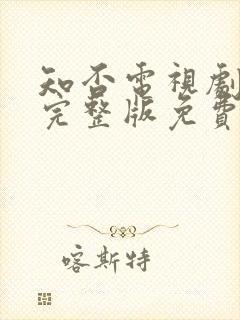 知否電視劇
完整版免費
喀斯特